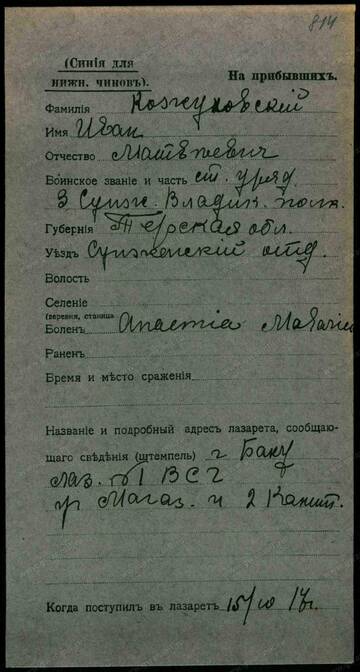 814
(Синія для
нижн. чиновъ).
На прибывшихъ.
Фамилія Кожуховскій
Имя Иван
Отчество Матвѣевич
Воинское званіе и часть ст. уряд.
3 Сунж. Владик. полк.
Губернія Терская обл.
Уѣздъ Сунженскій отд.
Волость
Селеніе
(деревня, станица
Боленъ Anaemia Malaria
Раненъ
Время и мѣсто сраженія
Названіе и подробный адресъ лазарета, сообщаю-
щаго свѣдѣнія (штемпель) г Баку
лаз. № 1 ВСГ
уг Магаз. и 2 Канит.
Когда поступилъ въ лазаретъ 15/10